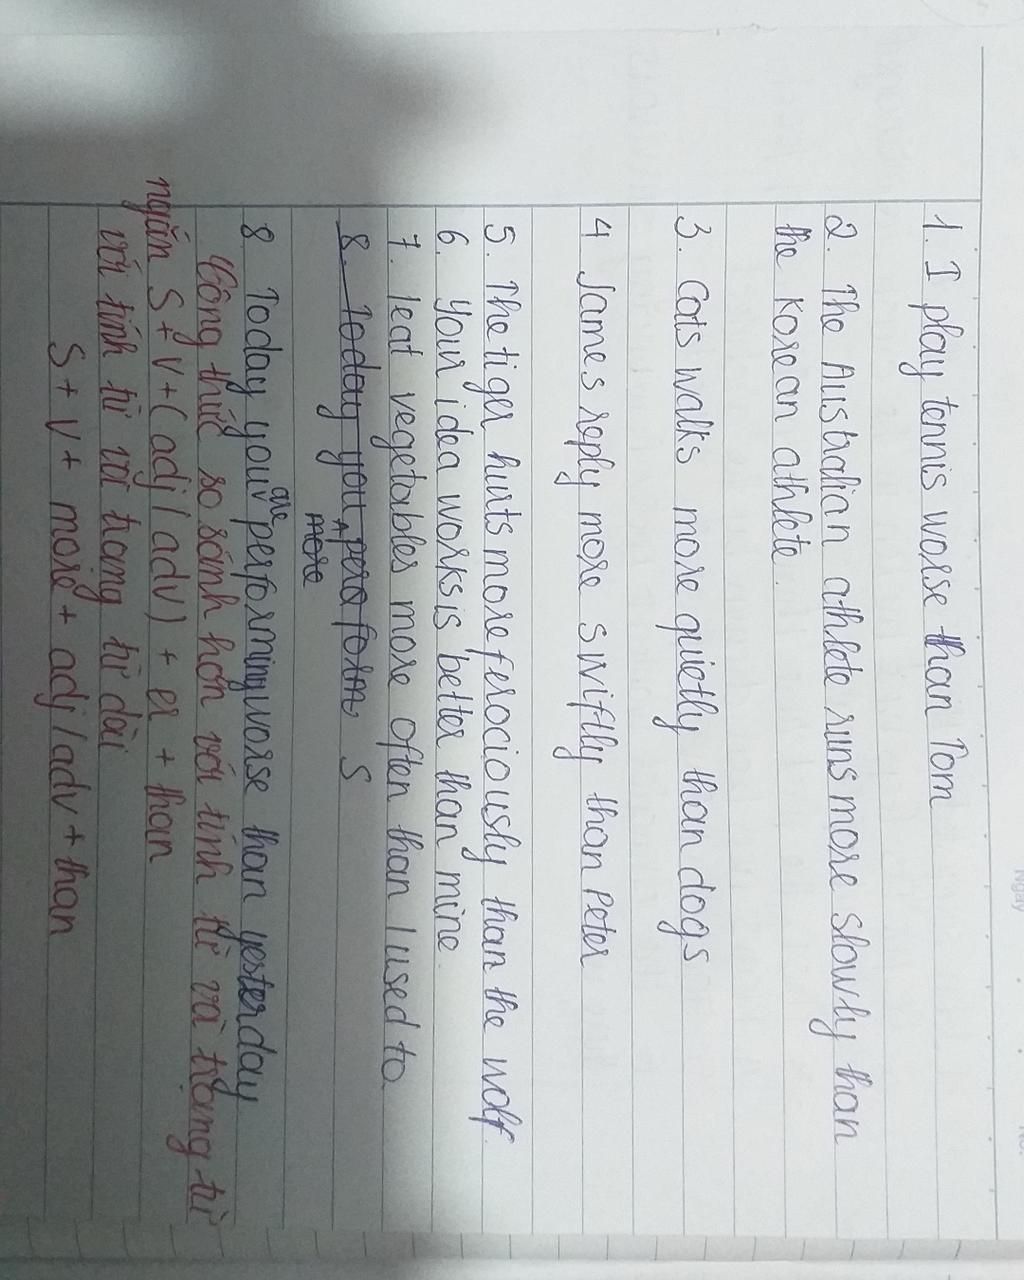 1. I play tennis worse than Tom
2. The Australian athlete runs more slowly than
the Korean athlete.
3. Cats walks more quietly than dogs
4 James reply more swiftly than Peter
5. The tiger hurts more ferociously than the wolf.
6. Your idea works is better than mine.
7. I eat vegetables more often than I used to.
8. Today you pera form S
more
are
8 Today you performing worse than yesterday
Công thức so sánh hơn với tính từ và trạng từ
ngắn S + V + ( adj / adv ) + er + than
với tính từ với trạng từ dài
S + V + more + adj / adv + than
Ngày
No.